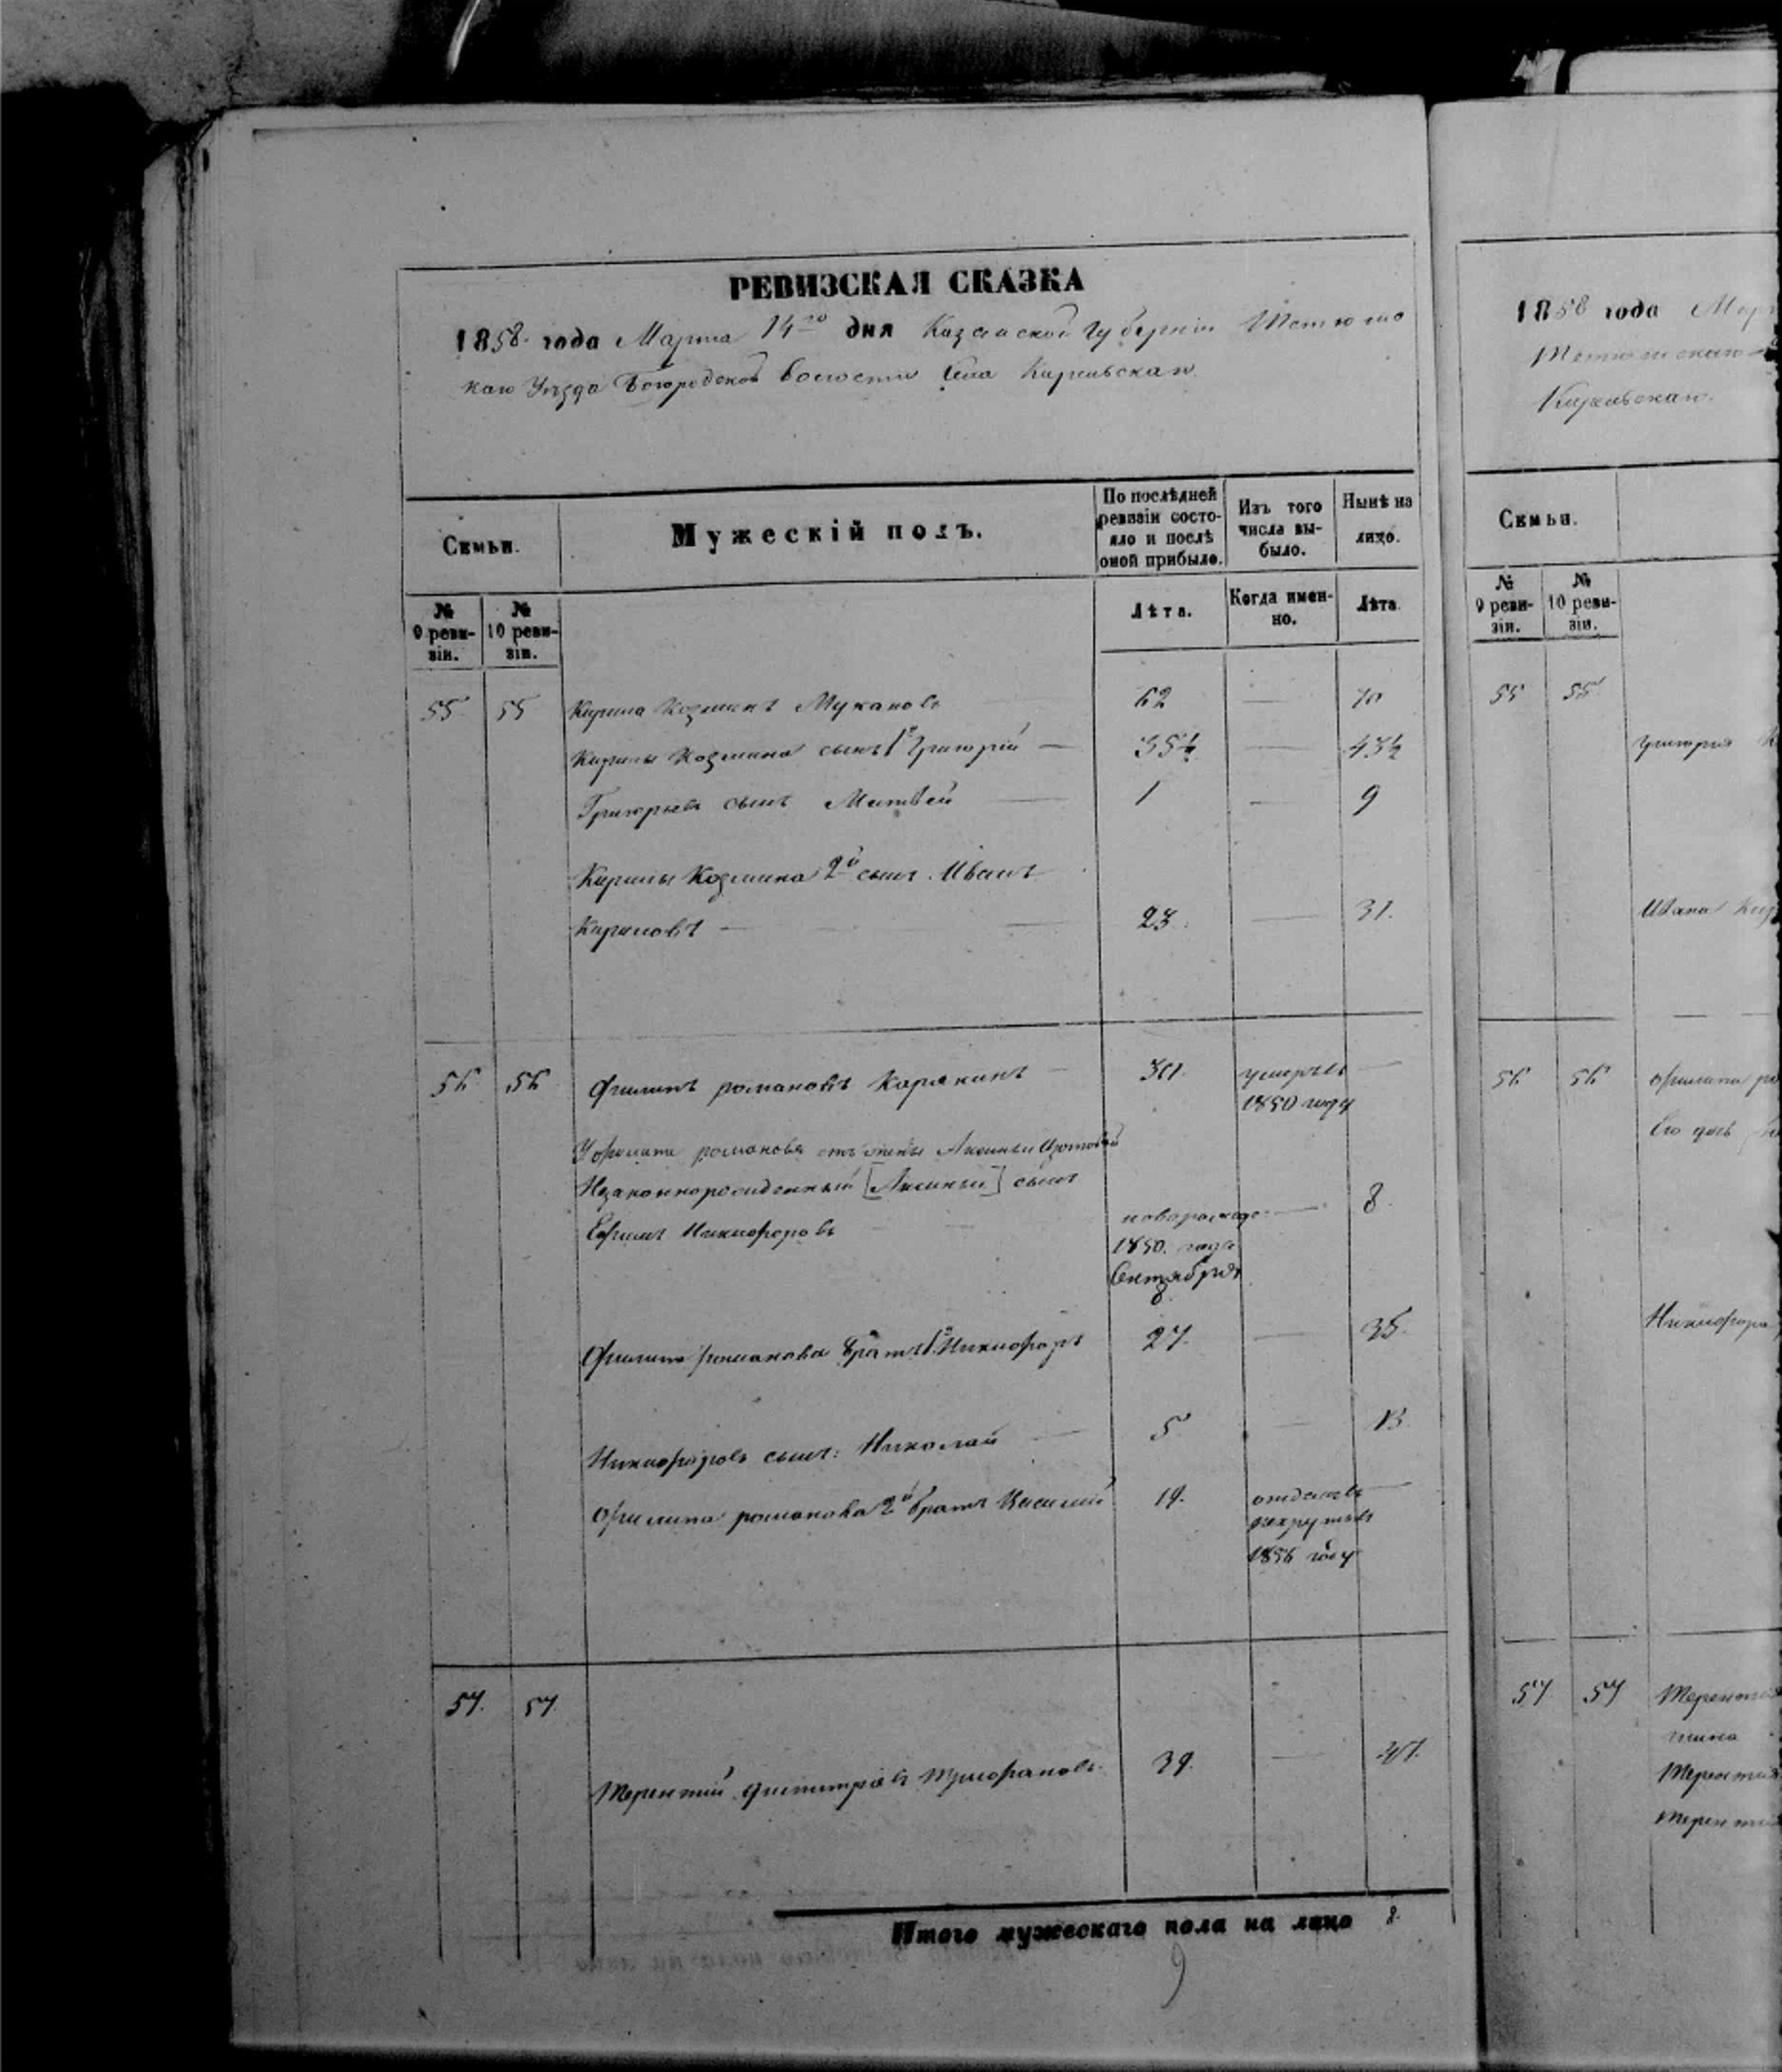 РЕВИЗСКАЯ СКАЗКА
1858 года Марта 14го дня Казанской Губерніи Тетюшс
каго Уѣзда Богородской волости Села Кирельскаго
Семьи.
Мужескій полъ.
По послѣдней ревизіи состо-
яло и послѣ
оной прибыло.
Изъ того
числа вы-
было.
Нынѣ на
лицо.
№
9 реви-
зіи.
№
10 реви-
зіи.
Лѣта.
Когда имен-
но.
Лѣта.
55 55 Кирила Козминъ Мукановъ — 62 — 70
Кирилы Козмина сынъ 1й Григорій — 35½ — 43½
Григорьевъ сынъ Матвей — 1 — 9
Кирилы Козмина 2й сынъ Иванъ
Кириловъ — 23 — 31.
56 56 Филипъ романовъ Карякинъ — 30 умеръ въ —
1850 году
У филипа романова отъ жены Аксиньи Изотовой
Незаконнорожденный [Аксиньи] сынъ
Ефимъ Никифоровъ — новорожде. — 8
1850. года
Сентября
8
Филипа романова братъ 1й Никифоръ 27. — 35.
Никифоровъ сынъ: Николай — 5 — 13
Филипа романова 2й братъ Василий 19. отданъ въ —
рекруты въ
1856 году
57. 57. Терентий Дмитріевъ 39. — 47.
Итого мужескаго пола на лицо 8.
9
1858 года
Тетюшскаго
Кирельскаго.
Семьи.
№
9 реви-
зіи.
№
10 реви-
зіи.
55 55
Григорья
Ивана
56 56 Филипа
Его
Никифора
57 57